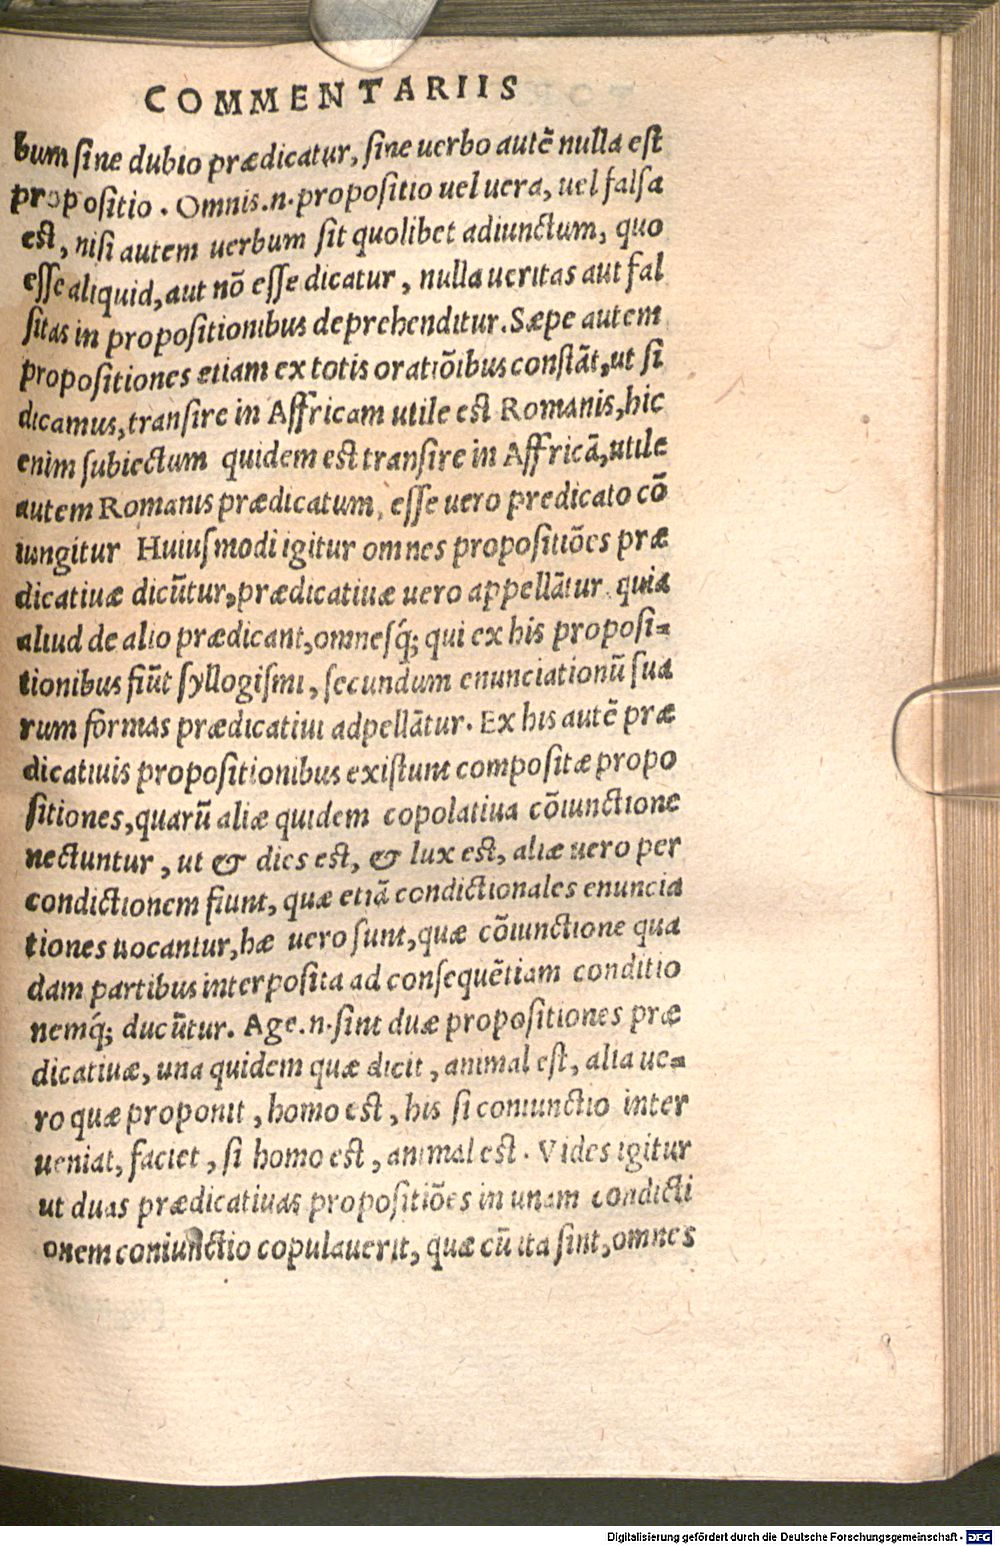 COMMENTARIIS
bum sine dubio prædicatur, sine uerbo autẽ nulla est
propositio. Omnis.n.propositio uel uera, uel falsa
est, nisi autem uerbum sit quolibet adiunctum, quo
esse aliquid, aut nõ esse dicatur, nulla ueritas aut fal
sitas in propositionibus deprehenditur. Sæpe autem
propositiones etiam ex totis oratiõibus constãt, ut si
dicamus, transire in Affricam utile est Romanis, hic
enim subiectum quidem est transire in Affricã, utile
autem Romanis prædicatum, esse uero predicato cõ
iungitur Huiusmodi igitur omnes propositiões præ
dicatiuæ dicũtur, prædicatiuæ uero appellãtur. quia
aliud de alio prædicant, omnesq́; qui ex his proposi-
tionibus fiũt syllogismi, secundum enunciationũ sua
rum formas prædicatiui adpellãtur. Ex his autẽ præ
dicatiuis propositionibus existunt compositæ propo
sitiones, quarũ aliæ quidem copolatiua cõiunctione
nectuntur, ut & dies est, & lux est, aliæ uero per
condictionem fiunt, quæ etiã condictionales enuncia
tiones uocantur, hæ uero sunt, quæ cõiunctione qua
dam partibus interposita ad consequẽtiam conditio
nemq́; ducũtur. Age.n.sint duæ propositiones præ
dicatiuæ, una quidem quæ dicit, animal est, alia ue-
ro quæ proponit, homo est, his si coniunctio inter
ueniat, faciet, si homo est, animal est. Vides igitur
ut duas prædicatiuas propositiões in unam condicti
onem coniunctio copulauerit, quæ cũ ita sint, omnes
Digitalisierung gefördert durch die Deutsche Forschungsgemeinschaft - DFG